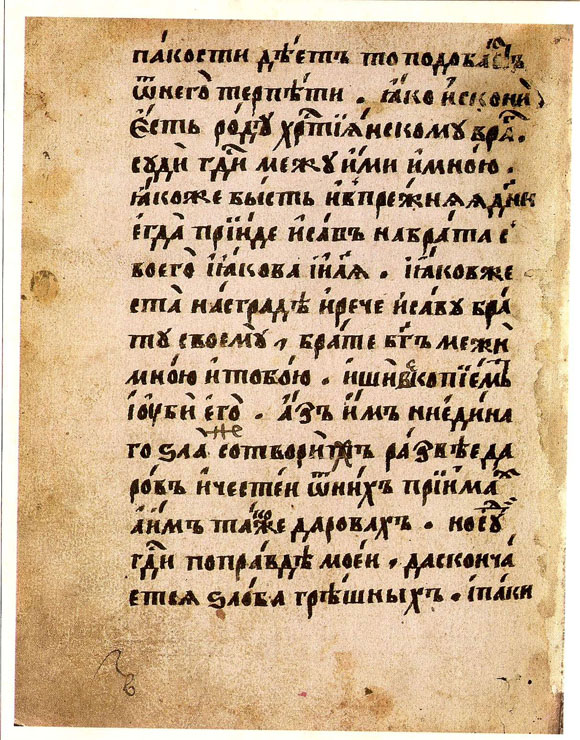 па́кости дѣ́етъ то подоба́етъ
ѿнего̀ терпѣ́ти . ꙗ́ко и҆сконѝ
є҆́сть ро́дꙋ хр҃тїѧ́нскомꙋ вра́.
сꙋдѝ гд҇и межꙋ и҆́ми и҆мно́ю .
ꙗ́коже бы́сть и҆впре́жнѧѧ дн҃и
є҆гда̀ прїи́де и҆са́въ набра́та с
воего̀ і҆ꙗ́кова і҆ . і҆ꙗ́ковже
ста̀ на́страдѣ и҆рече и҆са́вꙋ бра́
тꙋ своемꙋ̀ , бра́те бг҃ъ межѝ
мно́ю и҆тобо́ю . и҆шѝв копїе́мъ
і҆оуби є҆го̀ . а҆́зъ и҆́мъ ниєди́на
го ѕла̀ же сотвори́хъ ра́звѣ є҆да
ро́въ и҆честе́и ѿни́хъ прїи́ма
а҆и҆́мъ та́коже даровахъ .
гд҇и попра́вдѣ мое́и . да сконча́
етьѧ ѕло́ба грѣ́шныхъ . і҆па́ки